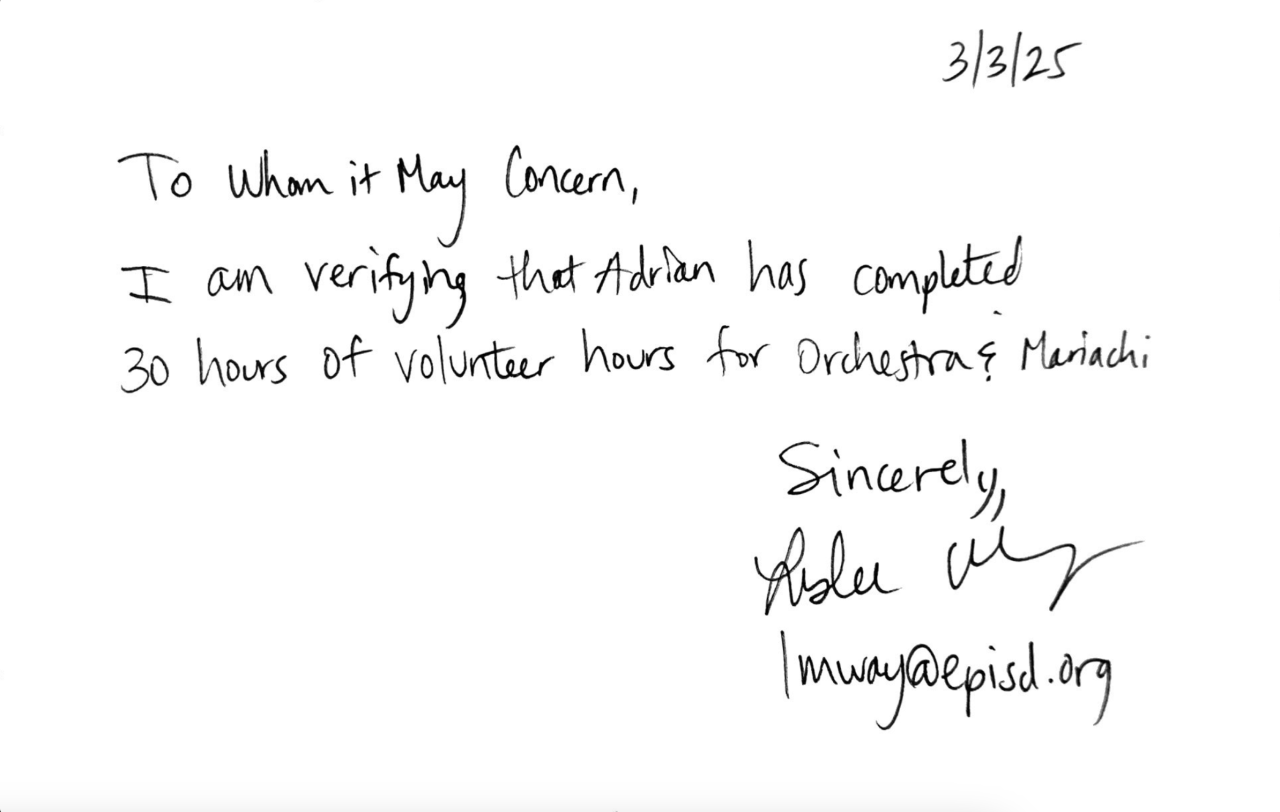 3/3/25
To Whom it May Concern,
I am verifying that Adrian has completed
30 hours of volunteer hours for Orchestra & Mariachi
Sincerely,
lmway@episd.org